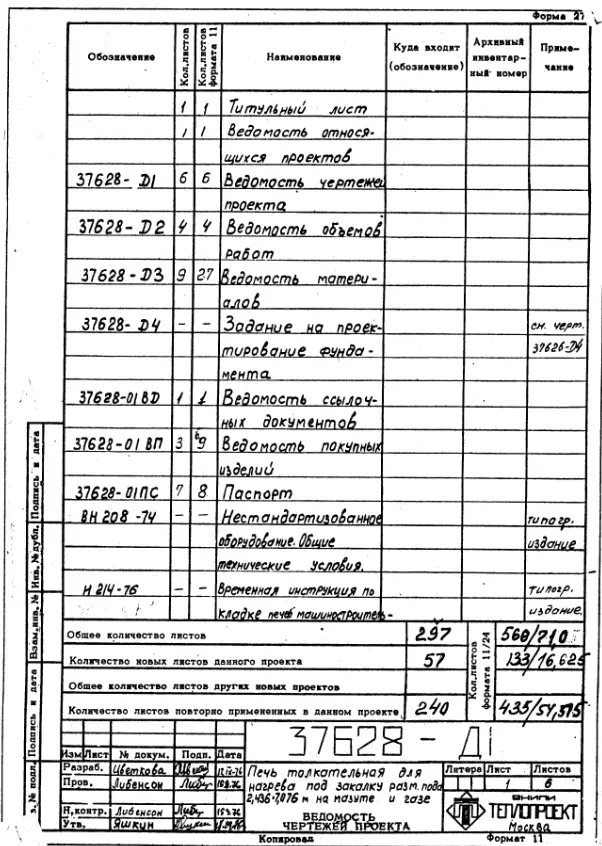 Форма 27
Обозначение Кол.листов Кол.листов формата 11 Наименование Куда входит (обозначение) Архивный инвентарный номер Примечание
1 1 Титульный лист
1 1 Ведомость относя-
щихся проектов
37628-Д1 6 6 Ведомость чертежей
проекта
37628-Д2 4 4 Ведомость объемов
работ
37628-Д3 9 27 Ведомость матери-
алов
37628-Д4 - - Задание на проек- см. черт.
тирование фунда- 37626-Д4
мента
37628-01ВД 1 1 Ведомость ссылоч-
ных документов
37628-01ВП 3 Ведомость покупных
изделий
37628-01ПС 7 8 Паспорт
ВН 208-74 - - Нестандартизованное типогр.
оборудование. Общие издание
технические условия.
И 214-76 - - Временная инструкция по типогр.
кладке печей машиностроитель- издание.
Общее количество листов 297 Кол.листов формата 11/24 568/71,0
Количество новых листов данного проекта 57 133/16,625
Общее количество листов других новых проектов
Количество листов повторно примененных в данном проекте 240 435/54,375
37628-Д1
Изм Лист № докум. Подп. Дата
Разраб. Цветкова
Пров. Либенсон
Н.контр. Либенсон
Утв. Яшкин
Печь толкательная для
нагрева под закалку разм. пода
2,436×7,076 м на мазуте и газе
ВЕДОМОСТЬ
ЧЕРТЕЖЕЙ ПРОЕКТА
Литера Лист Листов
1 6
ВНИПИ
ТЕПЛОПРОЕКТ
Москва
Копировал Формат 11
Подпись и дата
Инв.№дубл.
Взам.инв.№
Подпись и дата
№ подл.